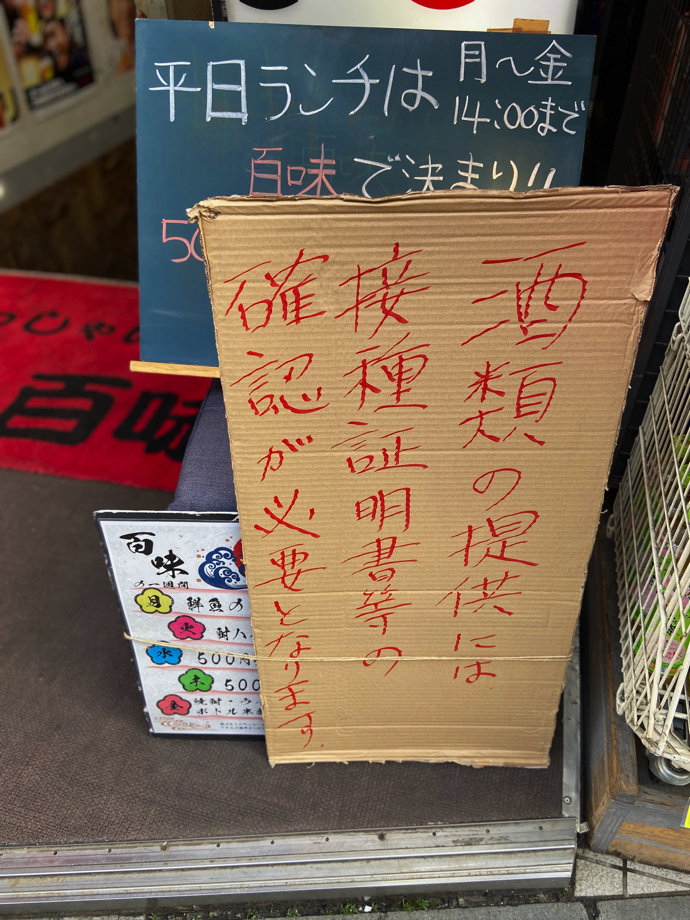 平日ランチは
月～金
14:00まで
百味で決まり!!
50
酒類の提供には
接種証明書等の
確認が必要となります.
じゃ
百味
百味
の一週間
月 鮮魚の
火 酎ハ
水 500円
木 500
金 焼酎・ウ
ボトル